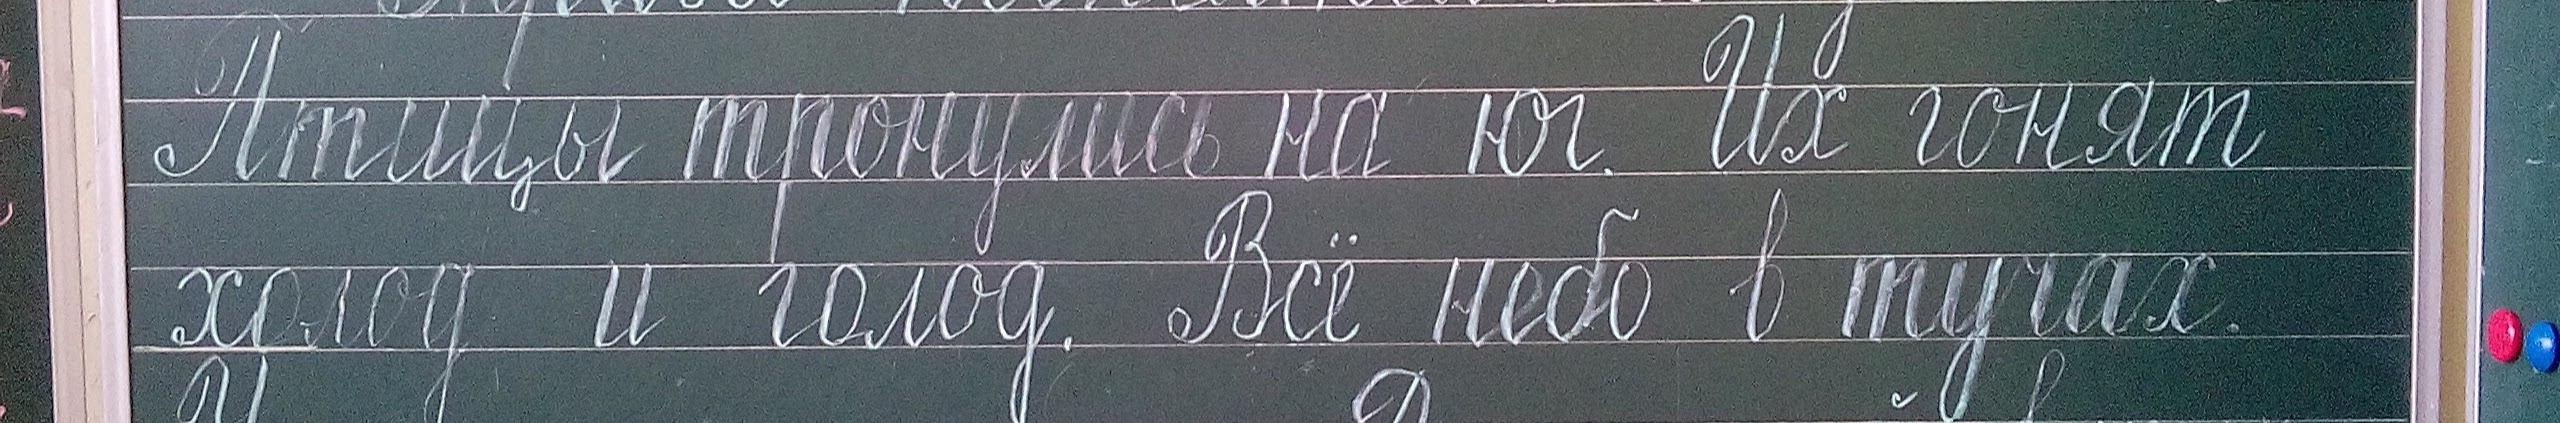 Птицы тронулись на юг. Их гонят
холод и голод. Всё небо в тучах.